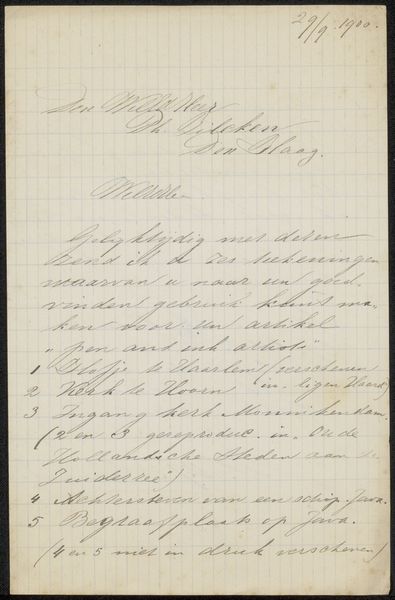 29/9 1900.
Den WelEd Heer
Ph. Zilcken
Den Haag.
WelEdele
Gelijktijdig met deren
zend ik u zes teekeningen
waarvan u naar uw goed
vinden gebruik kunt ma-
ken voor uw artikel
"pen and ink artists"
1 Hofje te Haarlem (verschenen
2 Kerk te Hoorn in Eigen Haard)
3 Ingang kerk Monnikendam.
(2 en 3 gereproduc. in Oude
Hollandsche Steden aan de
Zuiderzee")
4 Achtersteven van een schip. Java.
5 Begraafplaats op Java.
(4 en 5 niet in druk verschenen)